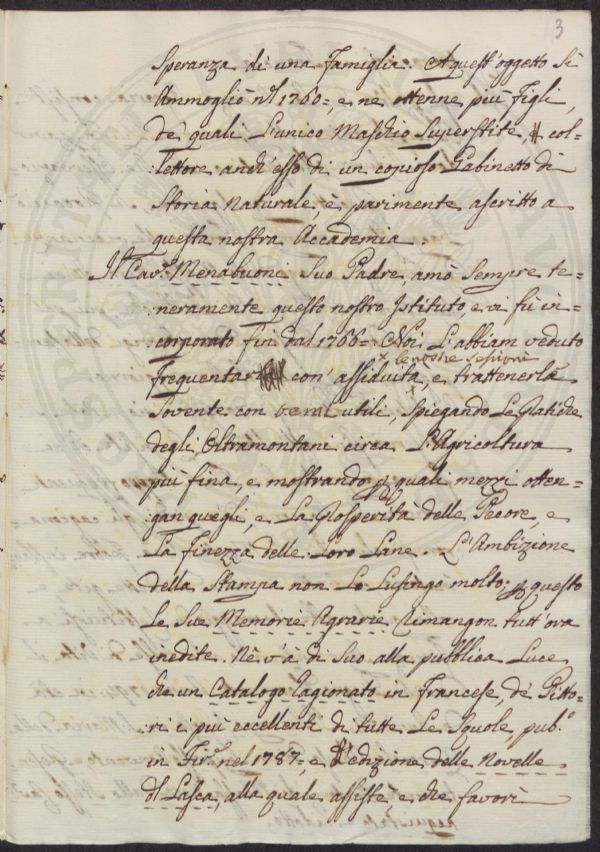 3
Speranza di una Famiglia. A quest'oggetto si
Ammogliò nel 1760=, e ne ottenne più figli,
de' quali L'unico Maschio Superstite, col=
lettore anch'esso di un copioso Gabinetto di
Storia Naturale, è parimente ascritto a
questa nostra Accademia.
Il Cav.r Menabuoni Suo Padre, amò Sempre te=
neramente questo nostro Istituto, e vi fù in=
corporato fin dal 1766= Noi L'abbiam veduto
x le nostre Sessioni
frequentar con' assiduità, e trattenerla
Sovente con temi utili, Spiegando Le Pratiche
degli Oltramontani circa L'Agricoltura
più fina, e mostrando p quali mezzi otten=
gan quegli, e La Prosperità delle Pecore, e
La finezza delle Loro Lane. L'Ambizione
della Stampa non Lo Lusingò molto; p questo
Le Sue Memorie Agrarie Rimangon tutt'ora
inedite. Nè v'à di Suo alla pubblica Luce
che un Catalogo ragionato in Francese, de' Pitto=
ri i più eccellenti di tutte Le Squole, pub.o
in Fir.e nel 1787=, e L'edizione delle Novelle
del Lasca, alla quale assistè, e che favorì